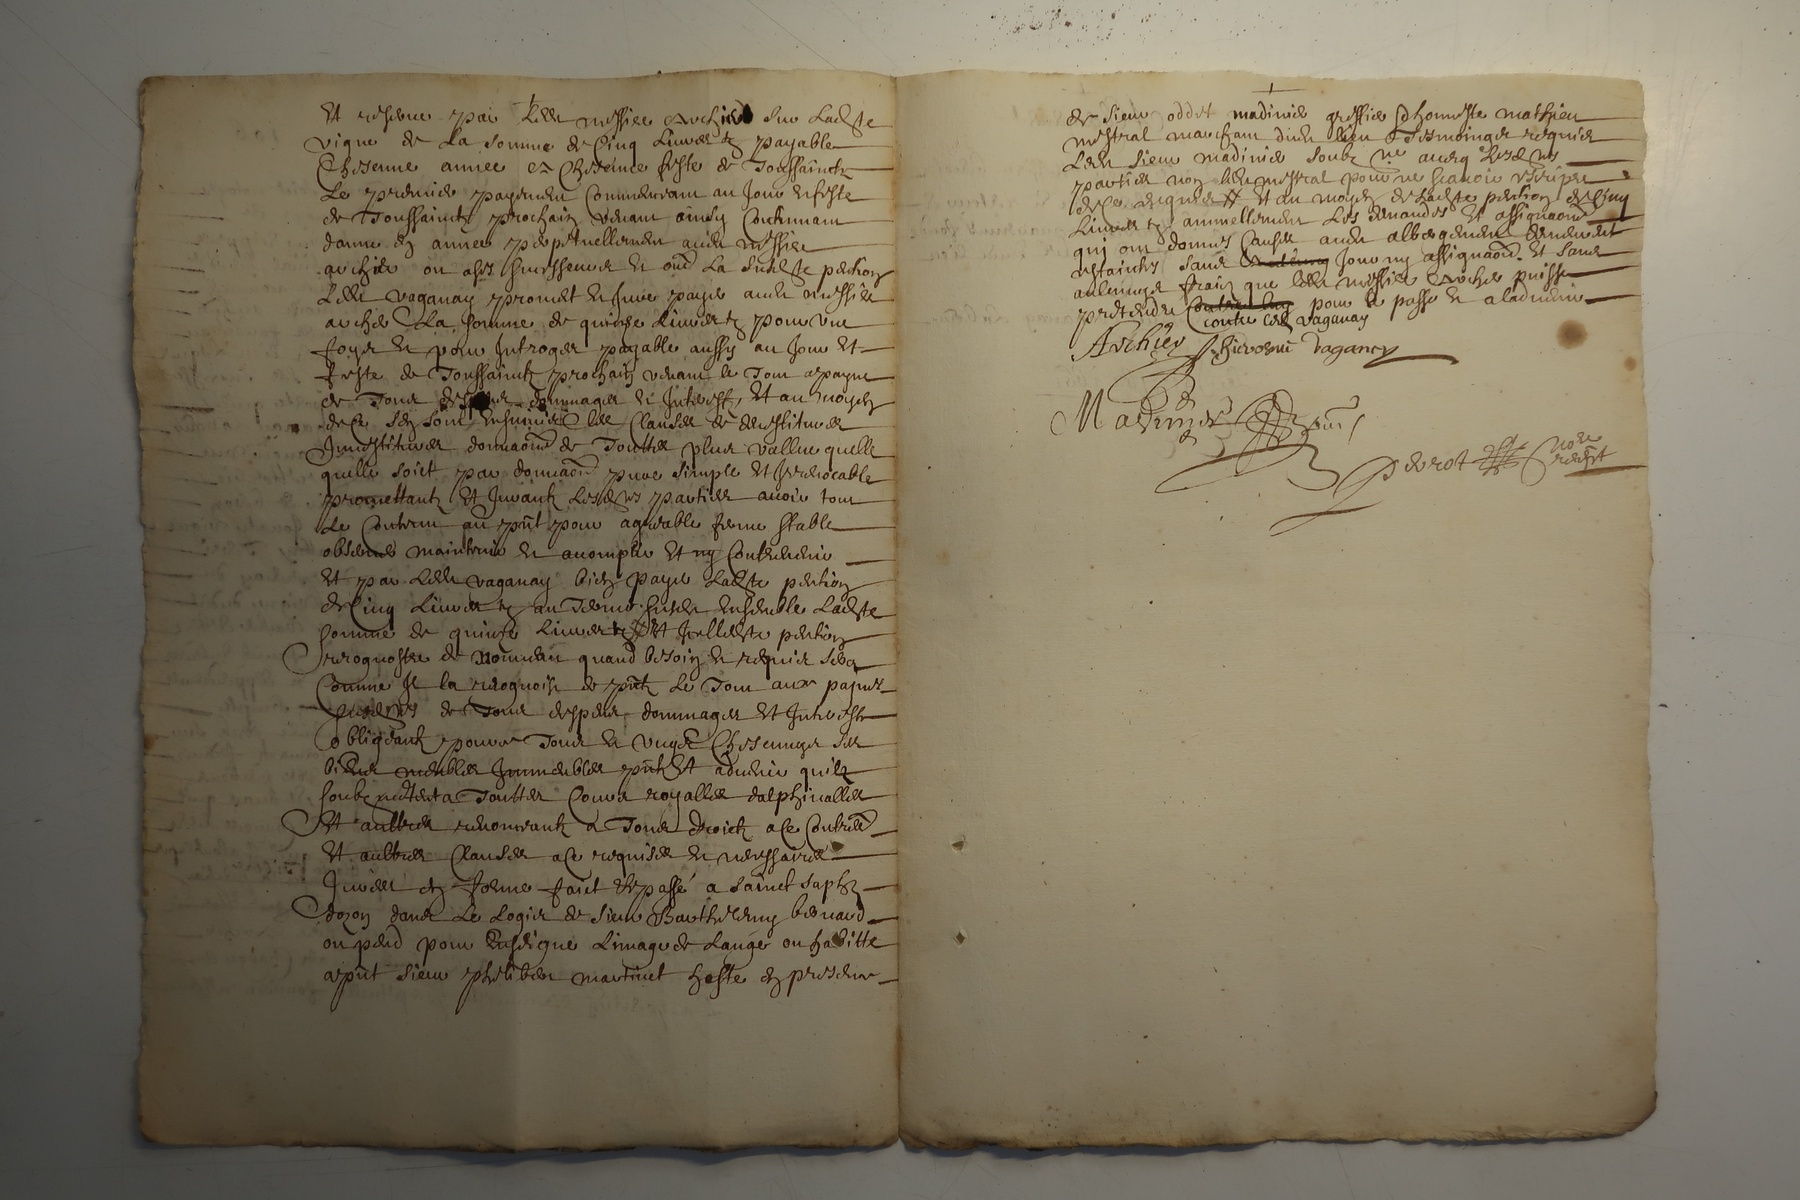 Et reserve par ledit messire Archier sur ladte
vigne de La somme de cinq Livres tz payable
Chesenne annee et Chesenne feste de Toussainctz
Le premier payement Commencant au Jour et feste
de Toussainctz prochain venant ainsy Continuant
dannee en annee perpetuellement audit messire
archier ou assz successeurs et oultre La susdte pention
Ledit vaganay promet et Jure payer audit messire
archer La somme de quinze Livres tz pour une
foys et pour Introges payable aussy au Jour et
feste de Toussainctz prochain venant le Tout a payne
de Tous despens dommages et Interestz Et au moyen
de ce sen sont Ensuivies les Clauses de devestitures
Investitures donnaon de Toutte plus vallue quelle
quelle soict par donnaon pure simple et Irrevocable
promettantz Et Jurantz Lesdtes parties avoir tout
Le Contenu au pnt pour agreable ferme stable
observer maintenir et acomplir Et ny Contrevenir
Et par Ledit vaganay bien payer Ladte pention
de Cinq Livres tz au Terme susdit Ensemble Ladte
somme de quinze Livres tz Et Icelle dte pention
recognostre de nouveau quand besoin et requis sera
Comme Il la recognoist de pnt Le Tout aux paynes
susdtes de Tous despens dommages Et Interestz
obligeantz pour Tous et ungz Chescungz ses
biens meubles Immeubles pntz Et advenir quilz
soubzmettent a Touttes Cours royalles dalphinalles
Et aultres renoncantz a Tous droictz a Ce Contres
Et aultres Clauses a Ce requises et necessaires
Jurees en forme faict et passé a Sainct Saphn
dozon dans Le Logis de sieur Barthelemy bernard
ou pend pour Enseigne Limage de Lange ou habitte
a pnt sieur philibert martinet hoste en presence
de sieur oddet madinier greffier & honneste mathieu
mestral marchant dudit lieu Tesmoings requis
Ledit sieur madinier soubz ne avecq Lesdtes
parties non ledit mestral pour ne scavoir escripre
de ce enquis Et au moyen de ladte pention de Cinq
Livres tz annuellement Les demandes et assignaons
qui ont donnes Cause audit albergement demeurent
estainctes sans Jour ny assignaon Et sans
aulcungz fraiz que ledit messire Archier puisse
pretendre pour le passe et aladvenir
contre ledit vaganay
Archier Hierosme Vaganey
Madinier
Perrot nore recept